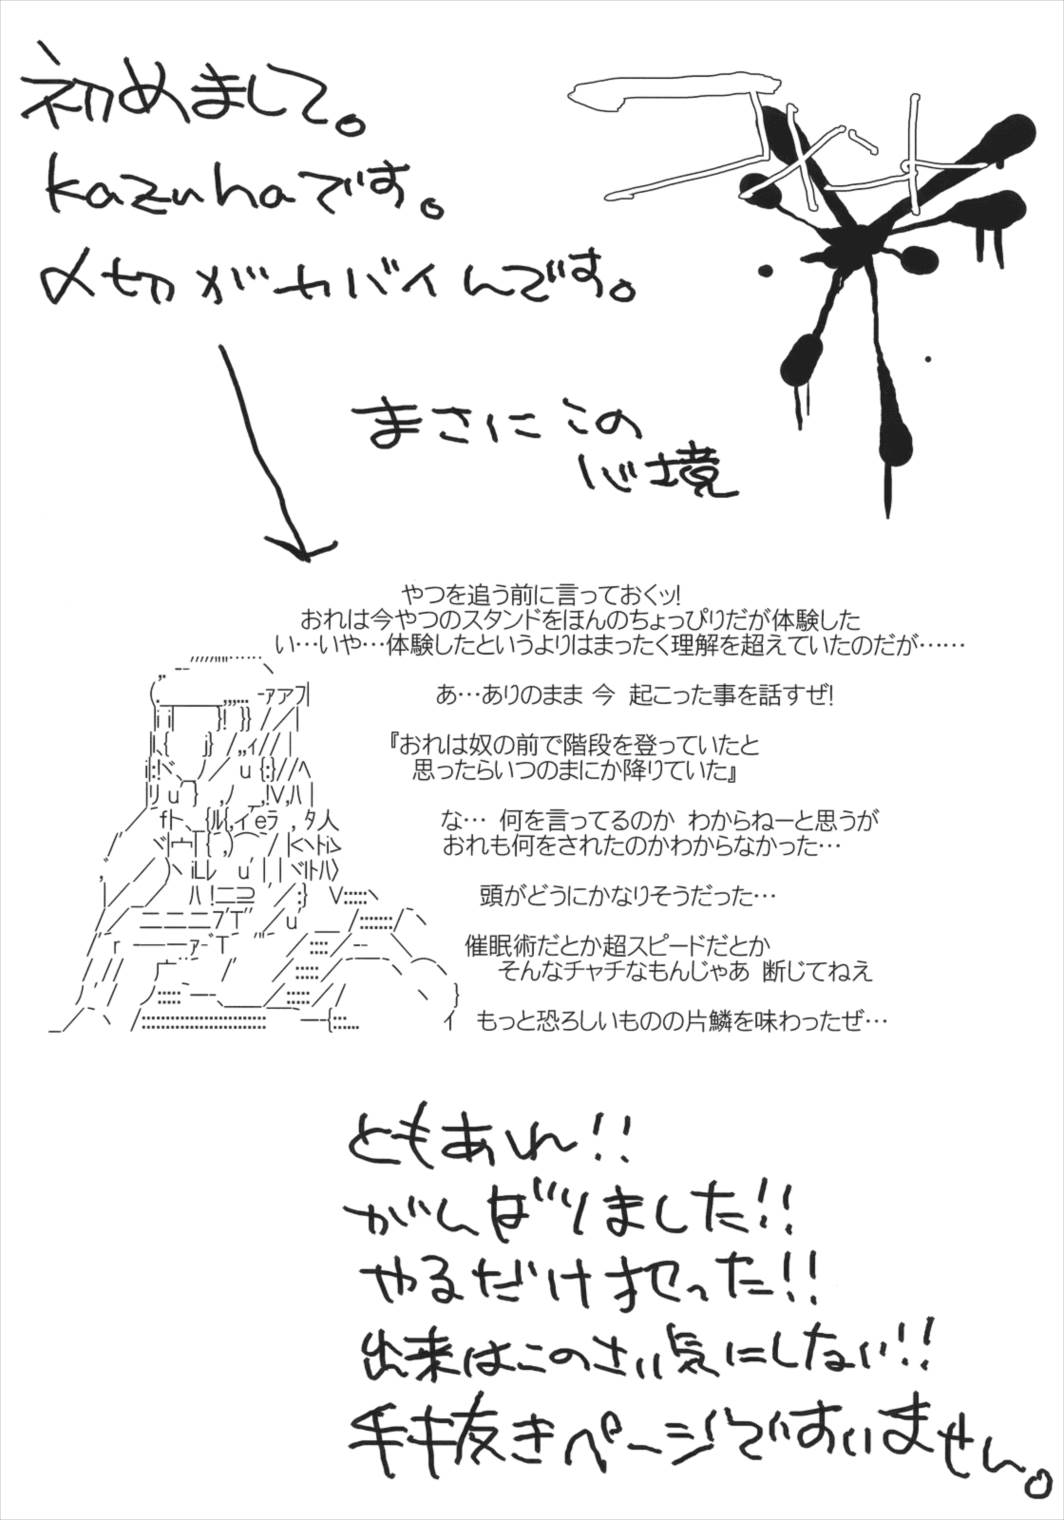 コメント
初めまして。
kazuhaです。
〆切がヤバイんです。
まさにこの
心境
やつを追う前に言っておくッ!
おれは今やつのスタンドをほんのちょっぴりだが体験した
い…いや…体験したというよりはまったく理解を超えていたのだが……
あ…ありのまま 今 起こった事を話すぜ!
『おれは奴の前で階段を登っていたと
思ったらいつのまにか降りていた』
な… 何を言ってるのか わからねーと思うが
おれも何をされたのかわからなかった…
頭がどうにかなりそうだった…
催眠術だとか超スピードだとか
そんなチャチなもんじゃあ 断じてねえ
もっと恐ろしいものの片鱗を味わったぜ…
ともあれ!!
がんばりました!!
やるだけやった!!
出来はこのさい気にしない!!
手抜きページですいません。